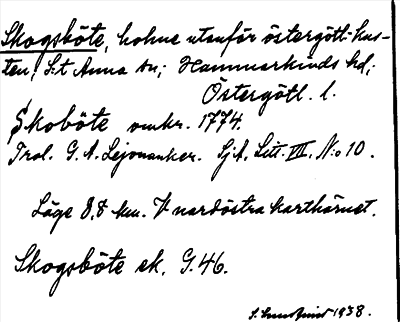 Skogsböte, holme utanför östergötl. kus-
ten! S:t Anna sn; Hammarkinds hd;
Östergötl. l.
Skoböte omkr. 1774.
Trol. G. A. Lejonanker. Sj.A, Litt. VII, N:o 10.
Läge 8,8 km. V nordöstra karthörnet.
Skogsböte ek. G. 46.
1938.